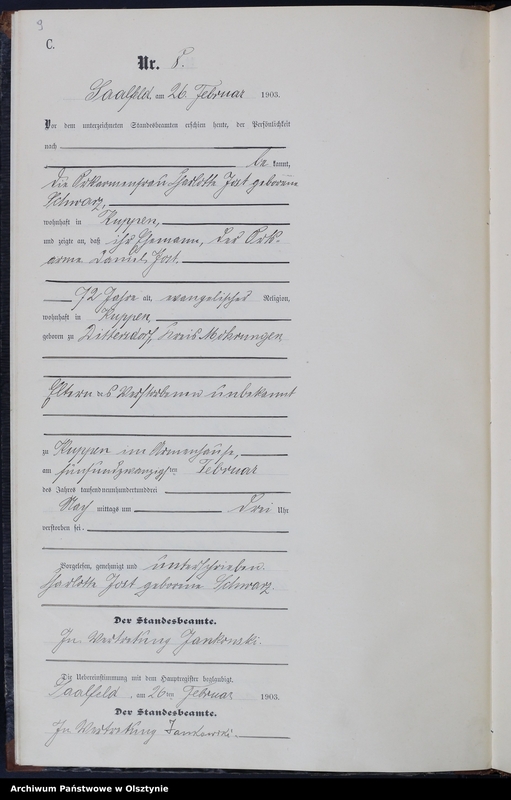 9
C.
Nr. 8.
Saalfeld am 26. Februar 1903.
Vor dem unterzeichneten Standesbeamten erschien heute, der Persönlichkeit
nach
be kannt,
die Ortsarmenfrau Charlotte Jost geborene
Schwarz,
wohnhaft in Kuppen,
und zeigte an, daß ihr Ehemann, der Orts-
arme Daniel Jost.
72 Jahre alt, evangelischer Religion,
wohnhaft in Kuppen,
geboren zu Dittersdorf, Kreis Mohrungen
Eltern des Verstorbenen unbekannt
zu Kuppen im Armenhause,
am fünfundzwanzigsten Februar
des Jahres tausendneunhundertunddrei
Nach mittags um drei Uhr
verstorben sei.
Vorgelesen, genehmigt und unterschrieben.
Charlotte Jost geborene Schwarz.
Der Standesbeamte.
In Vertretung Jankowski.
Die Uebereinstimmung mit dem Hauptregister beglaubigt.
Saalfeld, am 26ten Februar 1903.
Der Standesbeamte.
In Vertretung Jankowski.
Archiwum Państwowe w Olsztynie